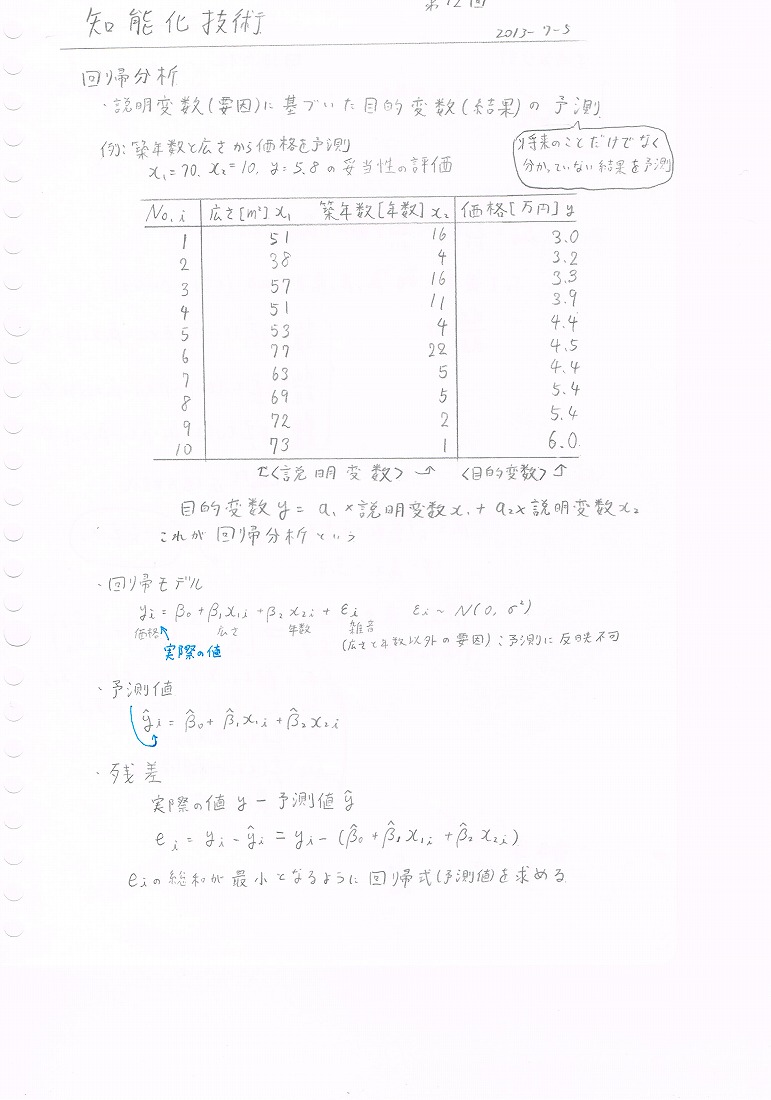 第12回
知能化技術
2013-7-5
回帰分析
・説明変数(要因)に基づいた目的変数(結果)の予測
将来のことだけでなく
分かっていない結果を予測
例:築年数と広さから価格を予測
x₁=70, x₂=10, y=5.8 の妥当性の評価
No, i 広さ[m²] x₁ 築年数[年数] x₂ 価格[万円] y
1 51 16 3.0
2 38 4 3.2
3 57 16 3.3
4 51 11 3.9
5 53 4 4.4
6 77 22 4.5
7 63 5 4.4
8 69 5 5.4
9 72 2 5.4
10 73 1 6.0
↑<説明変数>→↑ <目的変数>↑
目的変数y = a₁×説明変数x₁ + a₂×説明変数x₂
これが回帰分析という
・回帰モデル
yi = β₀ + β₁x₁i + β₂x₂i + εi εi ~ N(0, σ²)
価格 広さ 年数 雑音
実際の値 (広さと年数以外の要因):予測に反映不可
・予測値
ŷi = β̂₀ + β̂₁x₁i + β̂₂x₂i
・残差
実際の値 y − 予測値 ŷ
ei = yi − ŷi = yi − (β̂₀ + β̂₁x₁i + β̂₂x₂i)
eiの総和が最小となるように回帰式(予測値)を求める